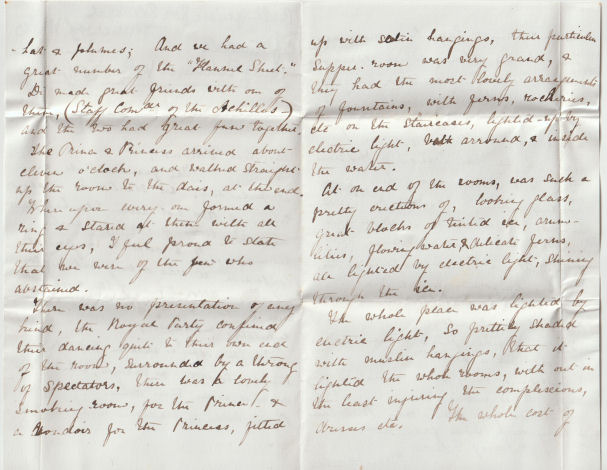 hats & plumes; And we had a
great number of the "Channel Fleet."
Di made great friends with one of
them, (Staff Comder of the Achilles)
and the two had great fun together.
The Prince & Princess arrived about
eleven o'clock, and walked straight
up the room to the dais, at the end.
Whereupon every one formed a
ring & stared at them with all
their eyes, I feel proud to state
that we were of the few who
abstained.
There was no presentation of any
kind, the Royal Party confined
their dancing quite to their own end
of the room, surrounded by a throng
of spectators, there was a lovely
smoking room, for the Prince! &
a Boudoir for the Princess, fitted
up with satin hangings, their particular
supper-room was very grand, &
they had the most lovely arrangements
of fountains, with ferns, rockeries,
etc on the staircases, lighted-up by
electric light, both arround, & inside
the water.
At one end of the rooms, was such a
pretty erections of, looking glass,
great blocks of tinted ice, arum-
lilies, flowing water & delicate ferns,
all lighted by electric light, shining
through the ice.
The whole place was lighted by
electric light, so prettily shaded
with muslin hangings, that it
lighted the whole rooms, with out in
the least injuring the complexions,
dresses etc. The whole cost of